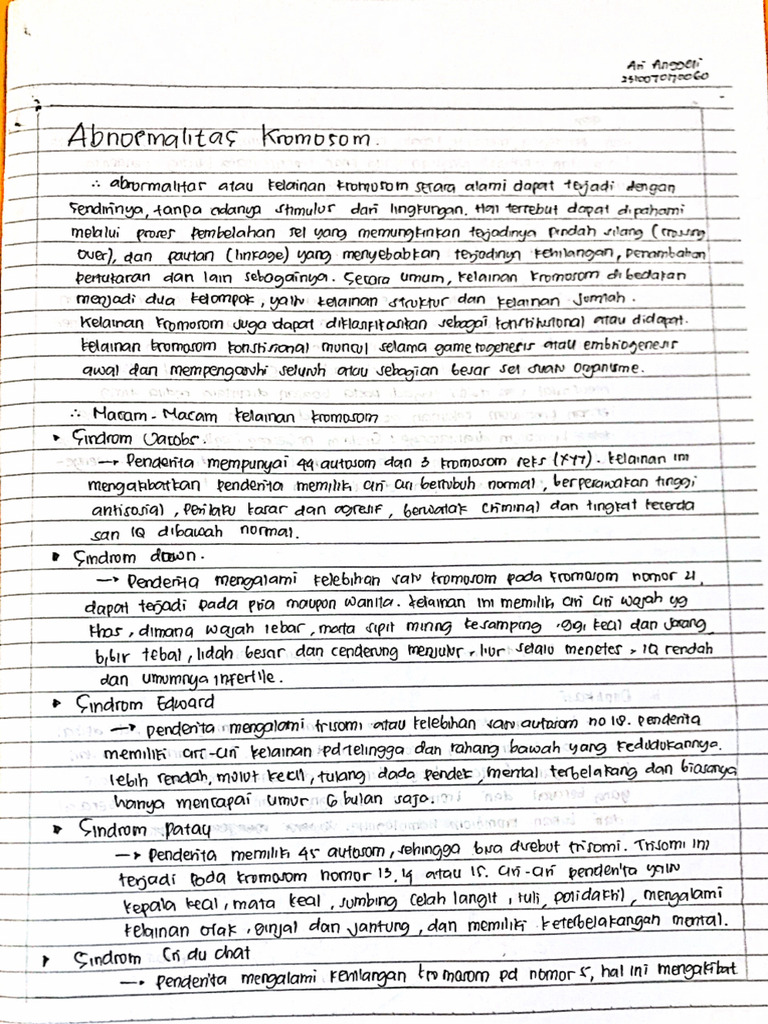 Ari Anggeli
Abnormalitas Kromosom.
∴ abnormalitas atau kelainan kromosom secara alami dapat terjadi dengan
sendirinya, tanpa adanya stimulus dari lingkungan. Hal tersebut dapat dipahami
melalui proses pembelahan sel yang memungkinkan terjadinya pindah silang (crossing
over), dan pautan (linkage) yang menyebabkan terjadinya kehilangan, penambahan
pertukaran dan lain sebagainya. Secara umum, kelainan kromosom dibedakan
menjadi dua kelompok, yaitu kelainan struktur dan kelainan jumlah.
Kelainan kromosom juga dapat diklasifikasikan sebagai konstitusional atau didapat.
kelainan kromosom konstisional muncul selama gametogenesis atau embriogenesis
awal dan mempengaruhi seluruh atau sebagian besar sel suatu organisme.
∴ Macam-Macam kelainan kromosom
▸ Sindrom Jacobs.
→ Penderita mempunyai 44 autosom dan 3 kromosom seks (XYY). kelainan ini
mengakibatkan penderita memiliki ciri ciri bertubuh normal, berperawakan tinggi
antisosial, perilaku kasar dan agresif, berwatak criminal dan tingkat kecerda
san IQ dibawah normal.
▸ Sindrom down.
→ Penderita mengalami kelebihan satu kromosom pada kromosom nomor 21,
dapat terjadi pada pria maupun wanita. kelainan ini memiliki ciri ciri wajah yg
khas, dimana wajah lebar, mata sipit miring kesamping, gigi kecil dan jarang,
bibir tebal, lidah besar dan cenderung menjulur, liur selalu menetes, IQ rendah
dan umumnya infertile.
▸ Sindrom Edward
→ penderita mengalami trisomi atau kelebihan satu autosom no 18. penderita
memiliki ciri-ciri kelainan pd telingga dan rahang bawah yang kedudukannya.
lebih rendah, mulut kecil, tulang dada pendek, mental terbelakang dan biasanya
hanya mencapai umur 6 bulan saja.
▸ Sindrom Patau
→ Penderita memiliki 45 autosom, sehingga bisa disebut trisomi. Trisomi ini
terjadi pada kromosom nomor 13, 14 atau 15. ciri-ciri penderita yaitu
kepala kecil, mata kecil, sumbing celah langit, tuli, polidaktil, mengalami
kelainan otak, ginjal dan jantung, dan memiliki keterbelakangan mental.
▸ Sindrom Cri du chat
→ penderita mengalami kehilangan kromosom pd nomor 5, hal ini mengakibat